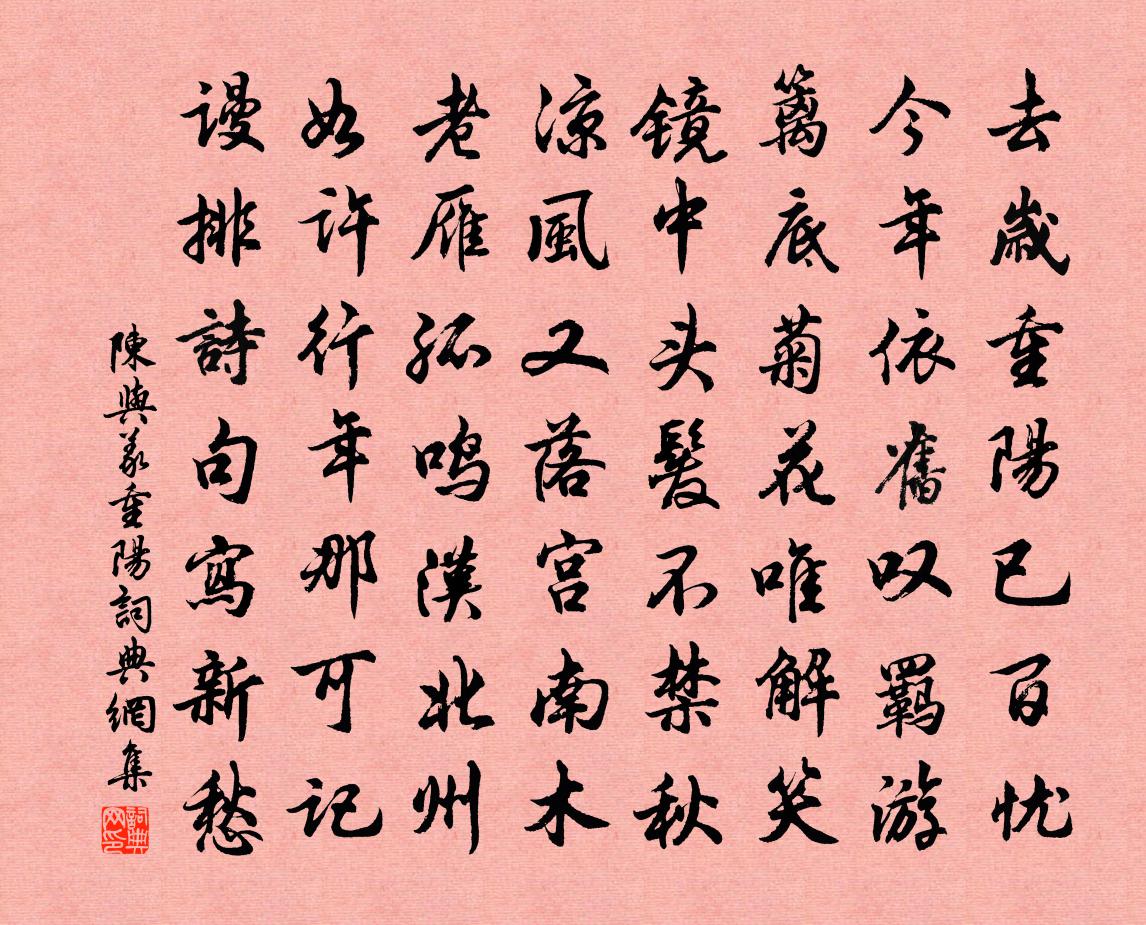 去歲重陽已百忧
今年依舊叹羁游
篱底菊花唯解笑
镜中头髮不禁秋
凉風又落宫南木
老雁孤鸣漢北州
如许行年那可记
谩排詩句寫新愁
陳與義重陽詞典網集
詞典网印